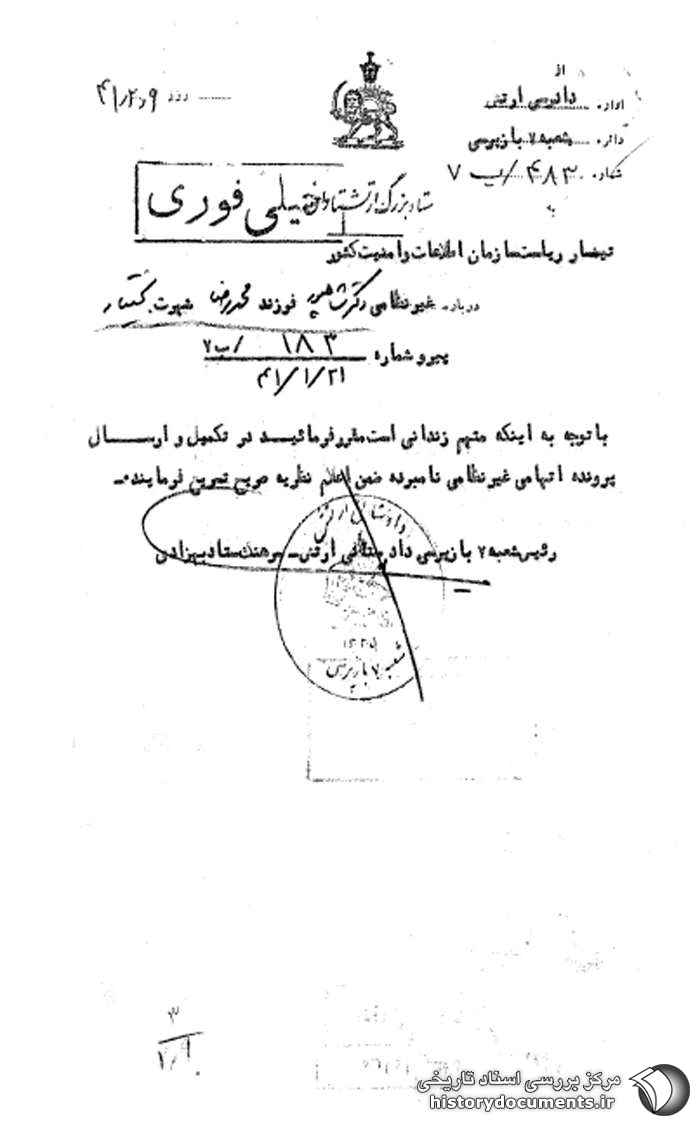 از
اداره دادرسی ارتش
دائره شعبه ۷ بازپرسی
شماره ۴۸۳/ب ۷
به
۴۱/۲/۹
ستاد بزرگ ارتشتاران
خیلی فوری
تیمسار ریاست سازمان اطلاعات و امنیت کشور
درباره غیرنظامی دکتر شاهپور فرزند محمدرضا شهرت بختیار
پیرو شماره ۱۸۳ /ب ۷
۴۱/۱/۲۱
با توجه به اینکه متهم زندانی است مقرر فرمائید در تکمیل و ارسال
پرونده اتهامی غیرنظامی نامبرده ضمن اعلام نظریه صریح تسریع فرمایند.
رئیس شعبه ۷ بازپرسی دادستانی ارتش - سرهنگ ستاد بهزادی
شعبه ۷ بازپرسی
۳
مرکز بررسی اسناد تاریخی
historydocuments.ir